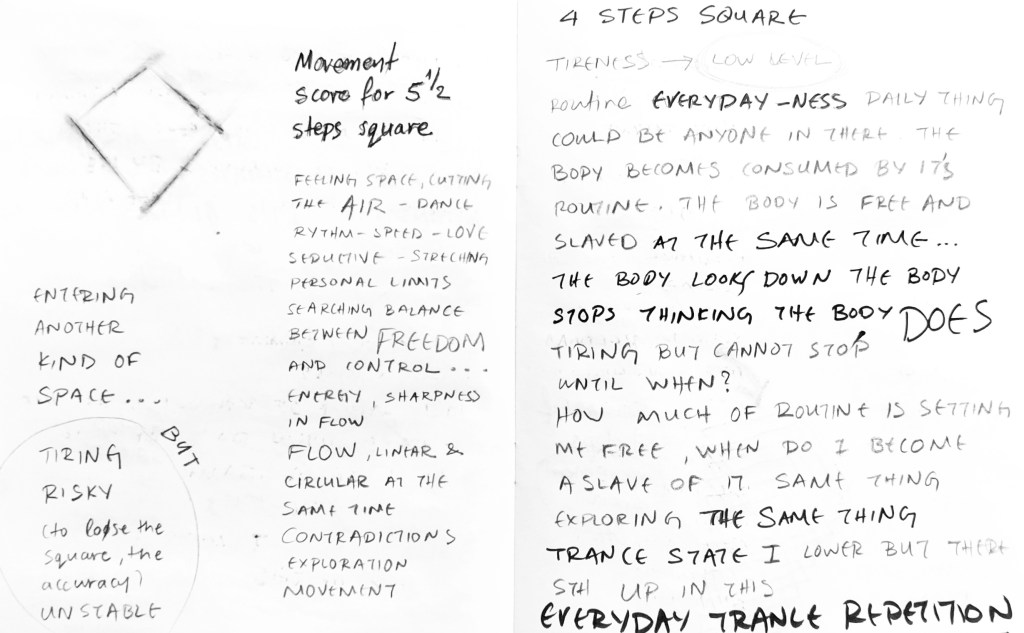 Movement
score for 5 1/2
steps square
FEELING SPACE, CUTTING
THE AIR - DANCE
RYTHM - SPEED - LOVE
SEDUCTIVE - STRECHING
PERSONAL LIMITS
SEARCHING BALANCE
BETWEEN FREEDOM
AND CONTROL...
ENERGY, SHARPNESS
IN FLOW
FLOW, LINEAR &
CIRCULAR AT THE
SAME TIME
CONTRADICTIONS
EXPLORATION
MOVEMENT
ENTERING
ANOTHER
KIND OF
SPACE....
BUT
TIRING
RISKY
(to loose the
square, the
accuracy)
UNSTABLE
4 STEPS SQUARE
TIRENESS → LOW LEVEL
Routine EVERYDAY-NESS DAILY THING
COULD BE ANYONE IN THERE. THE
BODY BECOMES CONSUMED BY IT'S
ROUTINE. THE BODY IS FREE AND
SLAVED AT THE SAME TIME...
THE BODY LOOKS DOWN THE BODY
STOPS THINKING THE BODY DOES
TIRING BUT CANNOT STOP
UNTIL WHEN?
HOW MUCH OF ROUTINE IS SETTING
ME FREE, WHEN DO I BECOME
A SLAVE OF IT. SAME THING
EXPLORING THE SAME THING
TRANCE STATE I LOWER BUT THERE
STH UP IN THIS
EVERYDAY TRANCE REPETITION